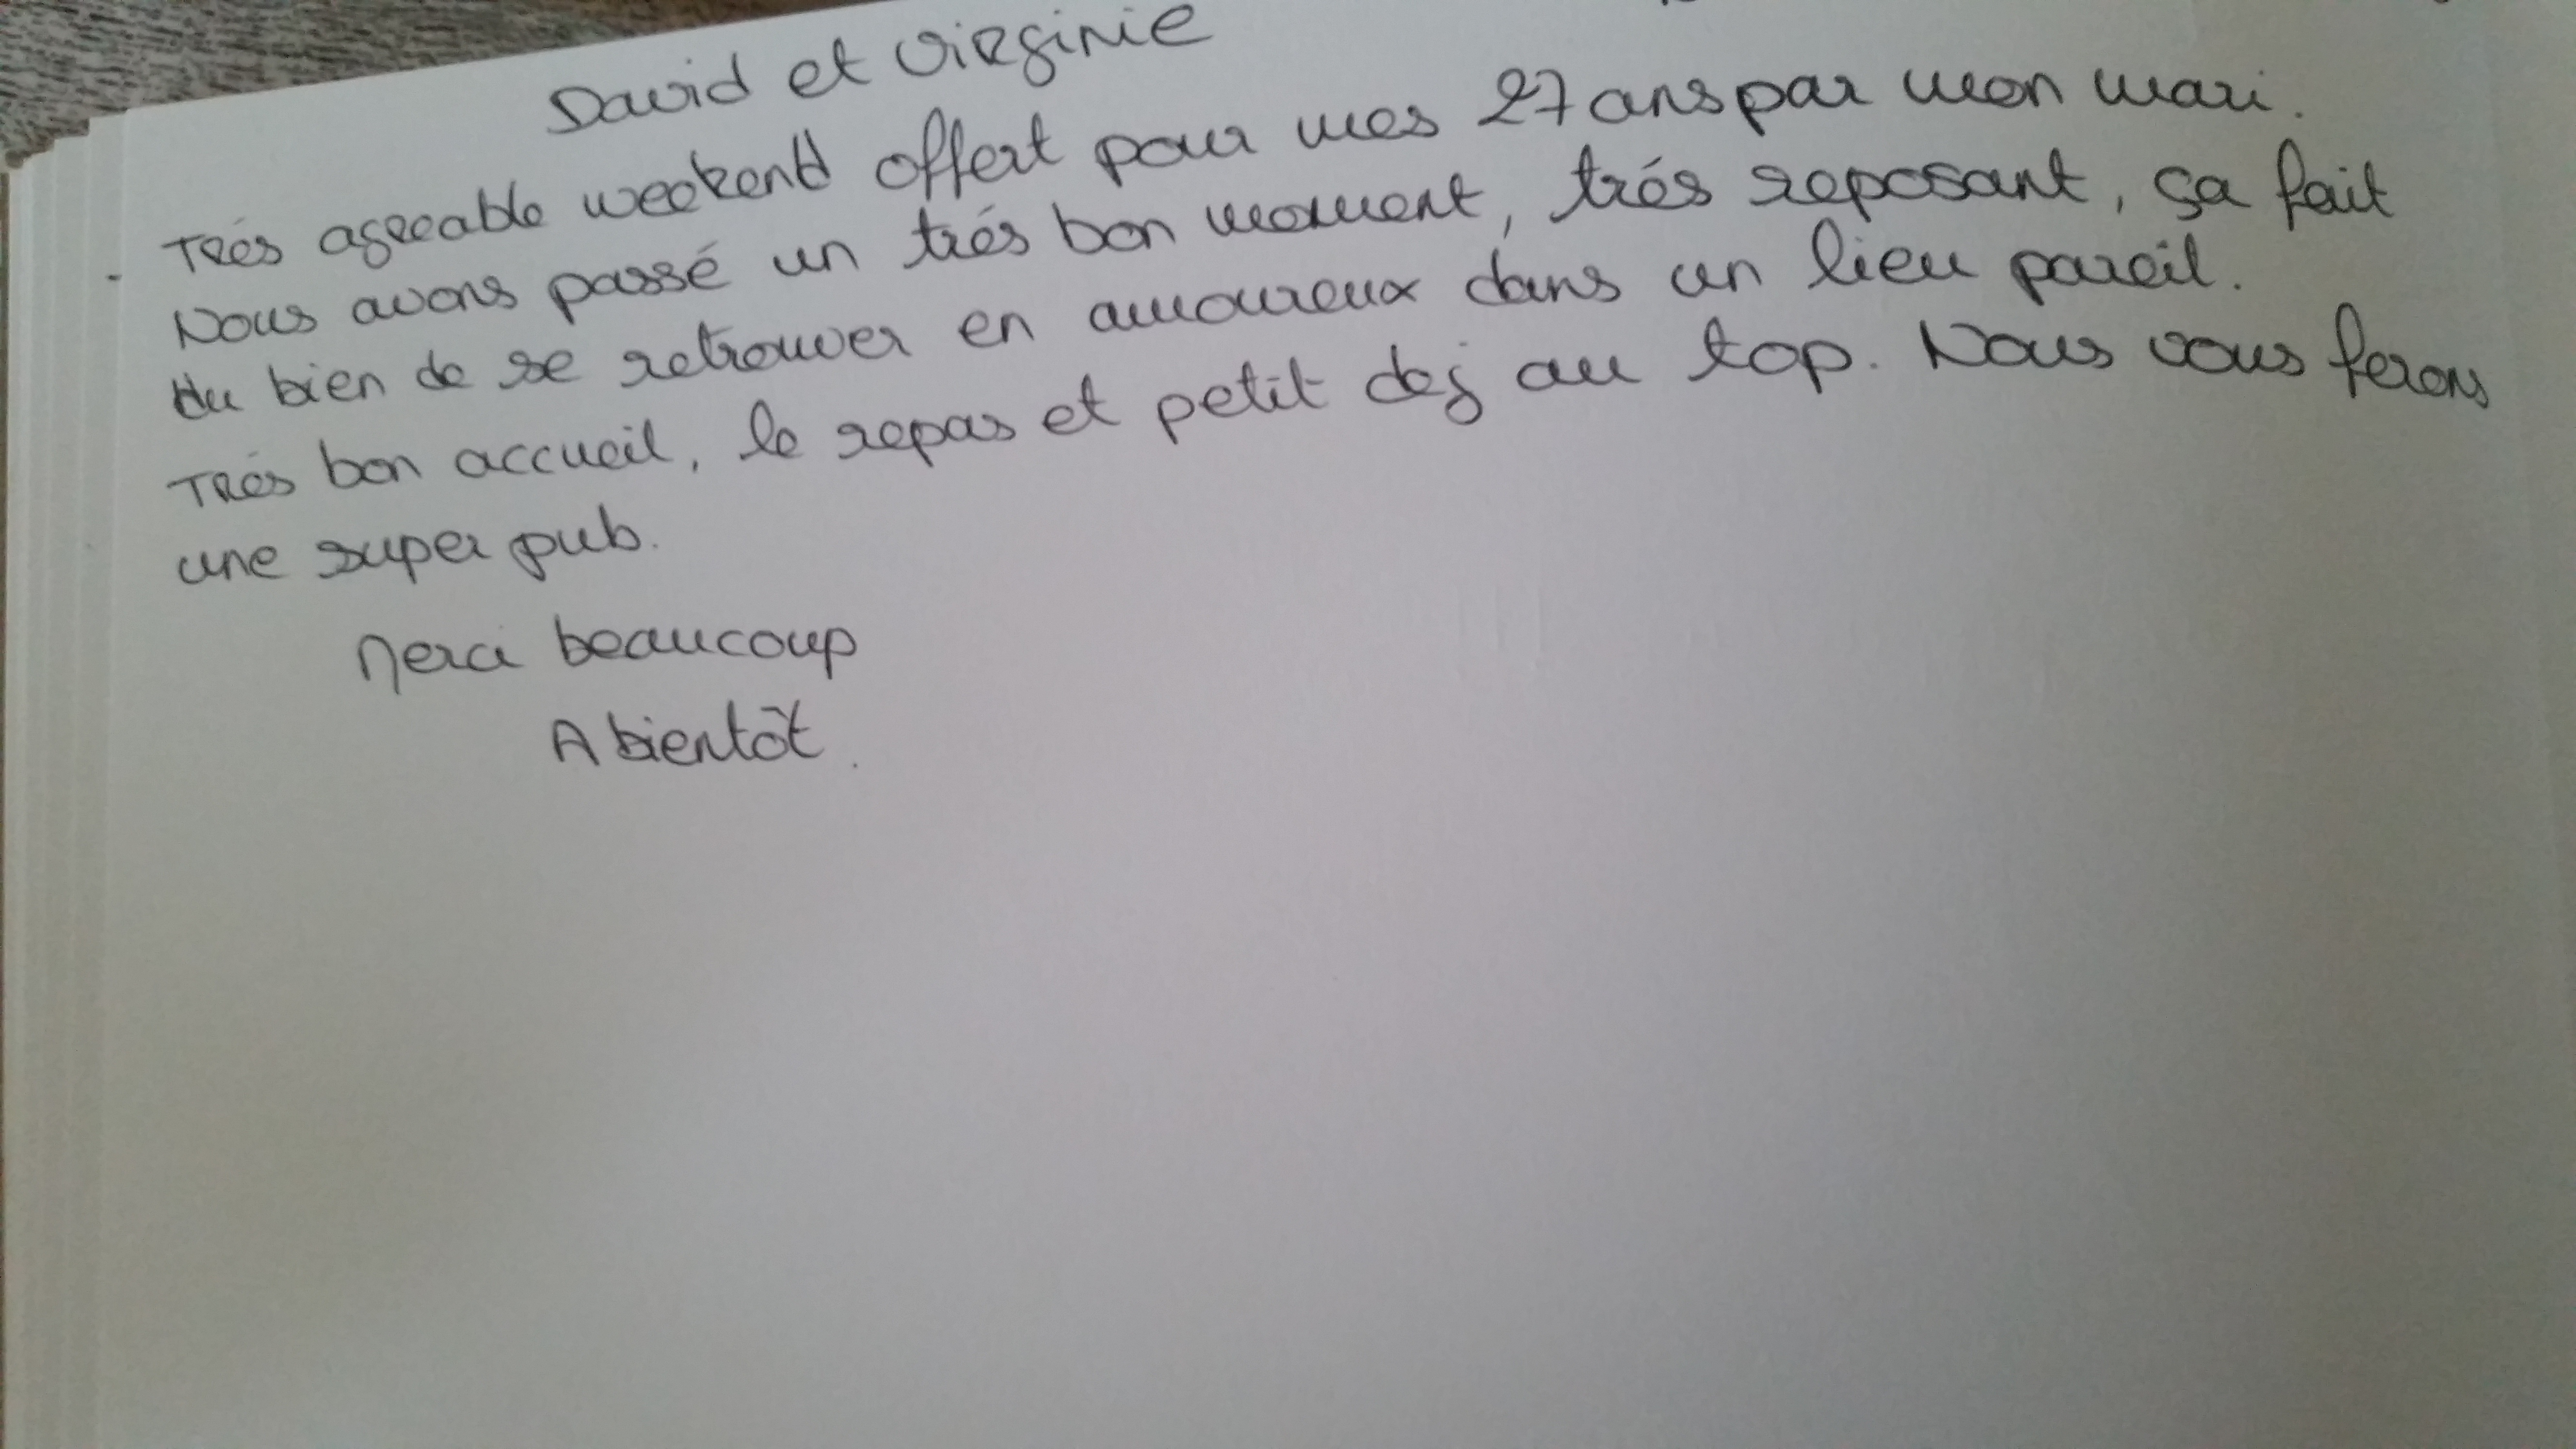 David et Virginie
Trés agreable weekend offert pour mes 27 ans par mon mari.
Nous avons passé un trés bon moment, trés reposant, ça fait
du bien de se retrouver en amoureux dans un lieu pareil.
Trés bon accueil, le repas et petit dej au top. Nous vous ferons
une super pub.
Merci beaucoup
A bientôt.